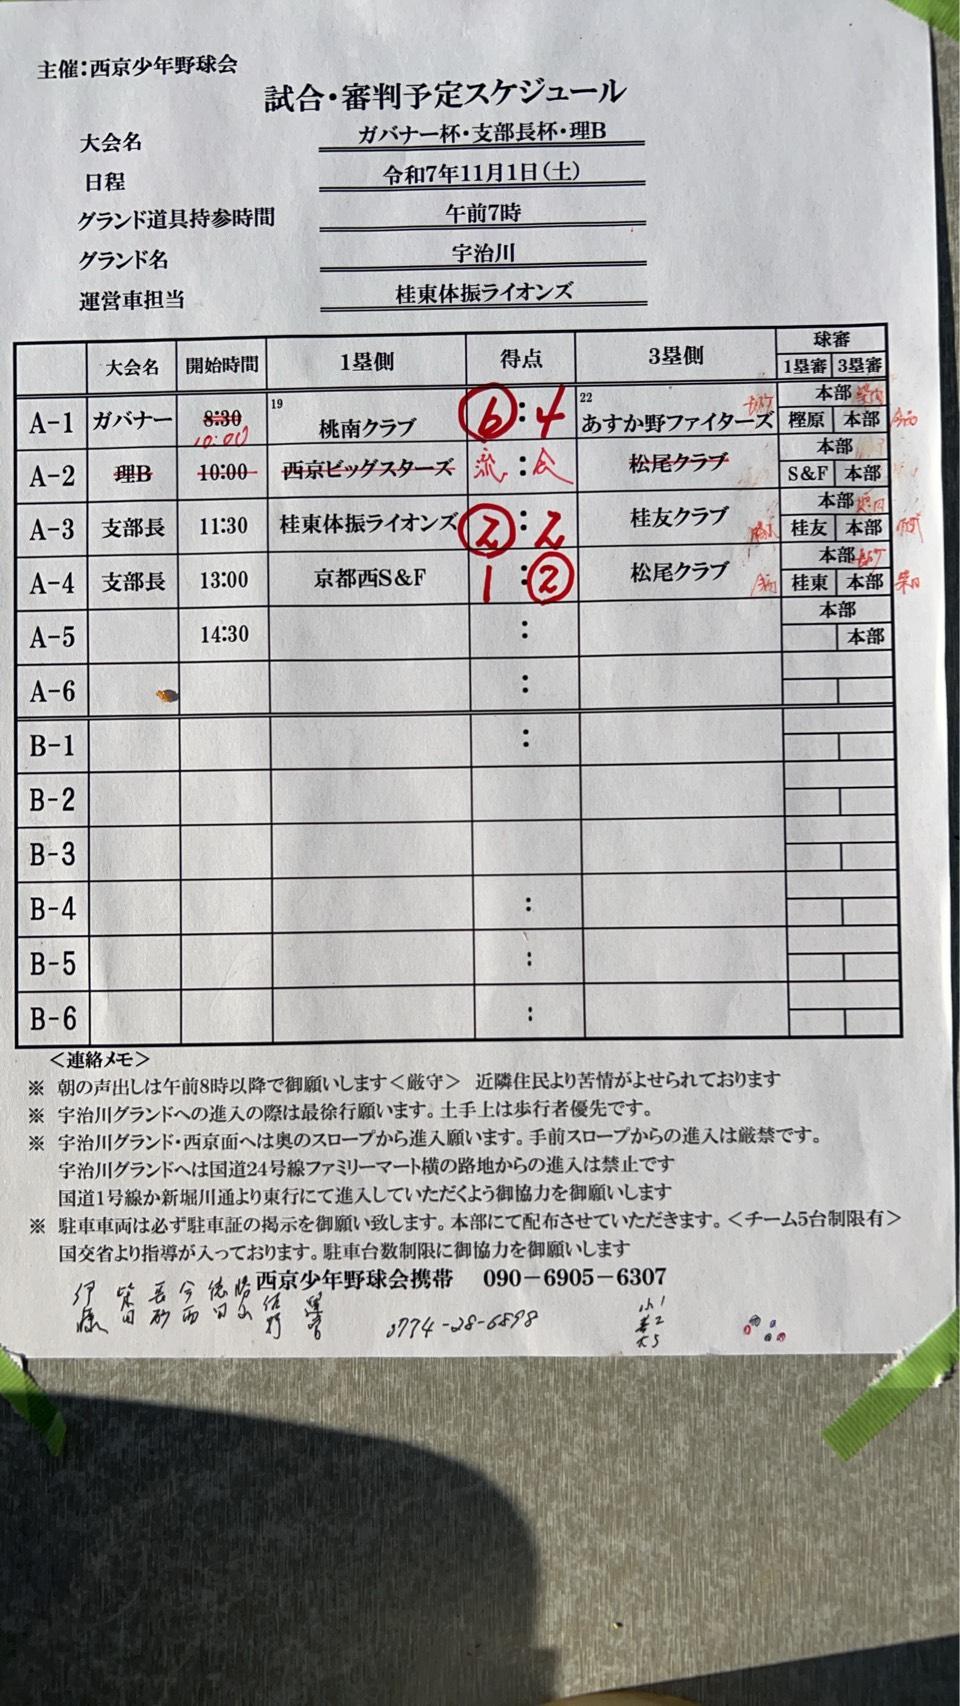 主催：西京少年野球会
試合・審判予定スケジュール
大会名 ガバナー杯・支部長杯・理B
日程 令和7年11月1日（土）
グランド道具持参時間 午前7時
グランド名 宇治川
運営車担当 桂東体振ライオンズ
大会名 開始時間 1塁側 得点 3塁側 球審
1塁審 3塁審
A-1 ガバナー 8:30 10:00 19 桃南クラブ 6：4 22 あすか野ファイターズ 本部
樫原 本部
A-2 理B 10:00 西京ビッグスターズ 流：会 松尾クラブ 本部
S&F 本部
A-3 支部長 11:30 桂東体振ライオンズ 2：2 桂友クラブ 本部
桂友 本部
A-4 支部長 13:00 京都西S&F 1：2 松尾クラブ 本部
桂東 本部
A-5 14:30 ： 本部
本部
A-6 ：
B-1 ：
B-2
B-3
B-4 ：
B-5 ：
B-6 ：
＜連絡メモ＞
※ 朝の声出しは午前8時以降で御願いします＜厳守＞ 近隣住民より苦情がよせられております
※ 宇治川グランドへの進入の際は最徐行願います。土手上は歩行者優先です。
※ 宇治川グランド・西京面へは奥のスロープから進入願います。手前スロープからの進入は厳禁です。
宇治川グランドへは国道24号線ファミリーマート横の路地からの進入は禁止です
国道1号線か新堀川通より東行にて進入していただくよう御協力を御願いします
※ 駐車車両は必ず駐車証の掲示を御願い致します。本部にて配布させていただきます。＜チーム5台制限有＞
国交省より指導が入っております。駐車台数制限に御協力を御願いします
西京少年野球会携帯 090-6905-6307
0774-28-6898